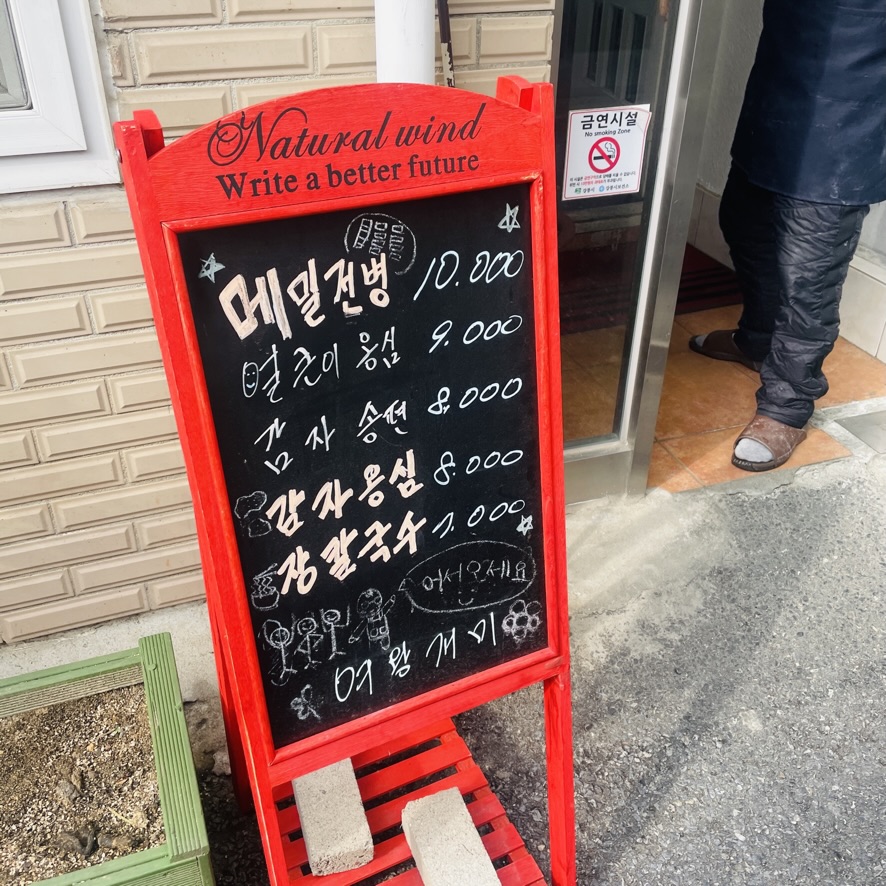 Natural wind
Write a better future
메밀전병 10.000
열촌이 옹심 9.000
감자 송편 8.000
감자옹심 8.000
장칼국수 7.000
어서오세요
여왕개미
금연시설
No smoking Zone
강릉시 강릉시보건소